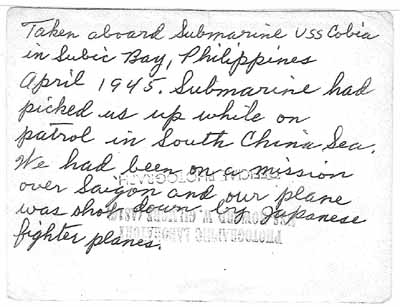 Taken aboard Submarine USS Cobia
in Subic Bay, Philippines
April 1945. Submarine had
picked us up while on
patrol in South China Sea.
We had been on a mission
over Saigon and our plane
was shot down by Japanese
fighter planes.